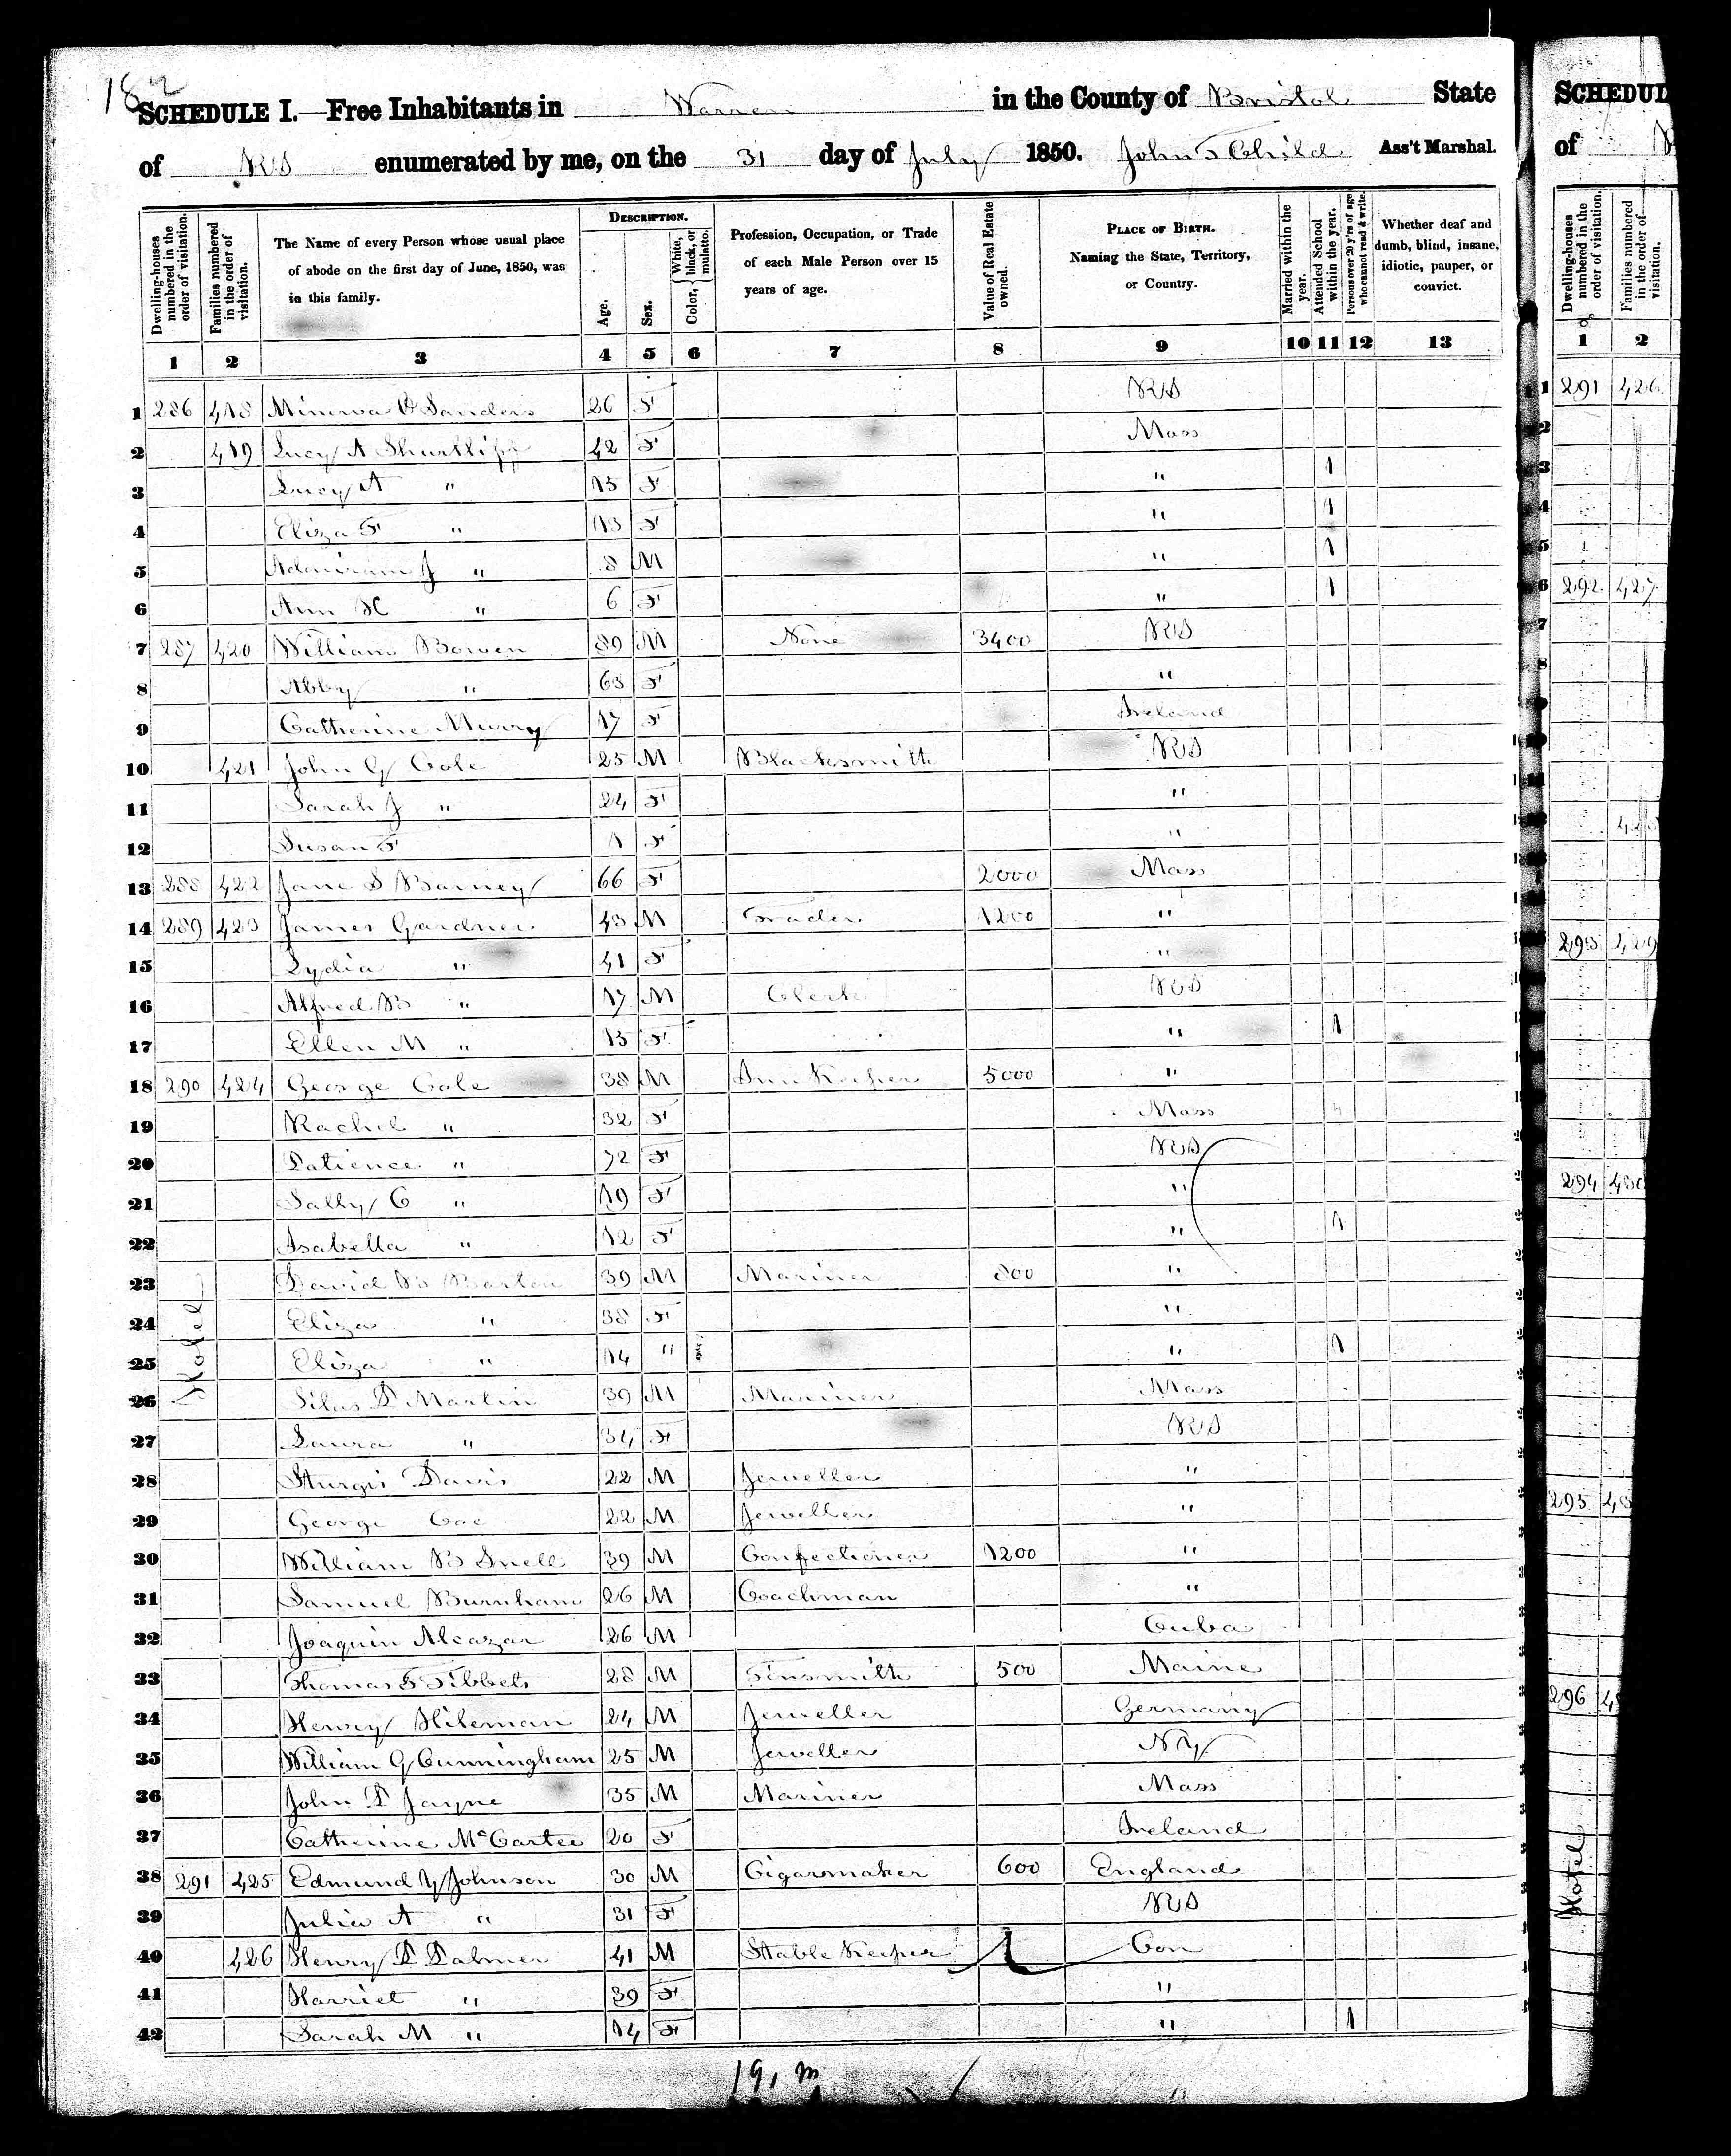 182
SCHEDULE I.—Free Inhabitants in Warren in the County of Bristol State
of R I enumerated by me, on the 31 day of July 1850. John T Child Ass't Marshal.
Dwelling-houses numbered in the order of visitation.
Families numbered in the order of visitation.
The Name of every Person whose usual place of abode on the first day of June, 1850, was in this family.
DESCRIPTION.
Age.
Sex.
Color, { White, black, or mulatto.
Profession, Occupation, or Trade of each Male Person over 15 years of age.
Value of Real Estate owned.
PLACE OF BIRTH. Naming the State, Territory, or Country.
Married within the year.
Attended School within the year.
Persons over 20 y'rs of age who cannot read & write.
Whether deaf and dumb, blind, insane, idiotic, pauper, or convict.
1 2 3 4 5 6 7 8 9 10 11 12 13
1 286 418 Minerva Sanders 26 F R I
2 419 Lucy A Shurtliff 42 F Mass
3 Lucy A " 15 F " 1
4 Eliza F " 13 F " 1
5 Adoniram J " 8 M " 1
6 Ann " 6 F " 1
7 287 420 William Bowen 89 M None 3400 R I
8 Abby " 68 F "
9 Catherine Murry 17 F Ireland
10 421 John G Cole 25 M Blacksmith R I
11 Sarah J " 24 F "
12 Susan F 1 F "
13 288 422 Jane S Barney 66 F 2000 Mass
14 289 423 James Gardner 43 M Trader 1200 "
15 Lydia " 41 F "
16 Alfred B " 17 M Clerk R I
17 Ellen M " 15 F " 1
18 290 424 George Cole 38 M Inn Keeper 5000 "
19 Rachel " 32 F Mass
20 Patience " 72 F R I
21 Sally C " 19 F "
22 Isabella " 12 F " 1
23 David B Barton 39 M Mariner 800 "
24 Eliza " 38 F "
25 Eliza " 14 " " 1
Hotel
26 Silas P Martin 39 M Mariner Mass
27 Laura " 34 F R I
28 Sturgis Davis 22 M Jeweller "
29 George Coe 22 M Jeweller "
30 William B Snell 39 M Confectioner 1200 "
31 Samuel Burnham 26 M Coachman "
32 Joaquin Alcazar 26 M Cuba
33 Thomas F Tibbets 28 M Tinsmith 500 Maine
34 Henry Hileman 24 M Jeweller Germany
35 William G Cunningham 25 M Jeweller N Y
36 John P Jayne 35 M Mariner Mass
37 Catherine McCartee 20 F Ireland
38 291 425 Edmund Y Johnson 30 M Cigarmaker 600 England
39 Julia A " 31 F R I
40 426 Henry P Palmer 41 M Stable Keeper Con
41 Harriet " 39 F "
42 Sarah M " 14 F " 1
19, m
SCHEDUL
of
Dwelling-houses numbered in the order of visitation.
Families numbered in the order of visitation.
1 2
291 426
292 427
293 429
294
295
296
Hotel